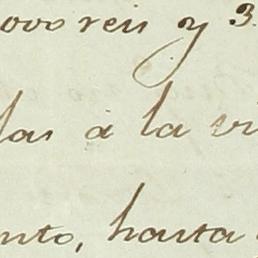 000 reis y 3
las a la vi
nto, hasta